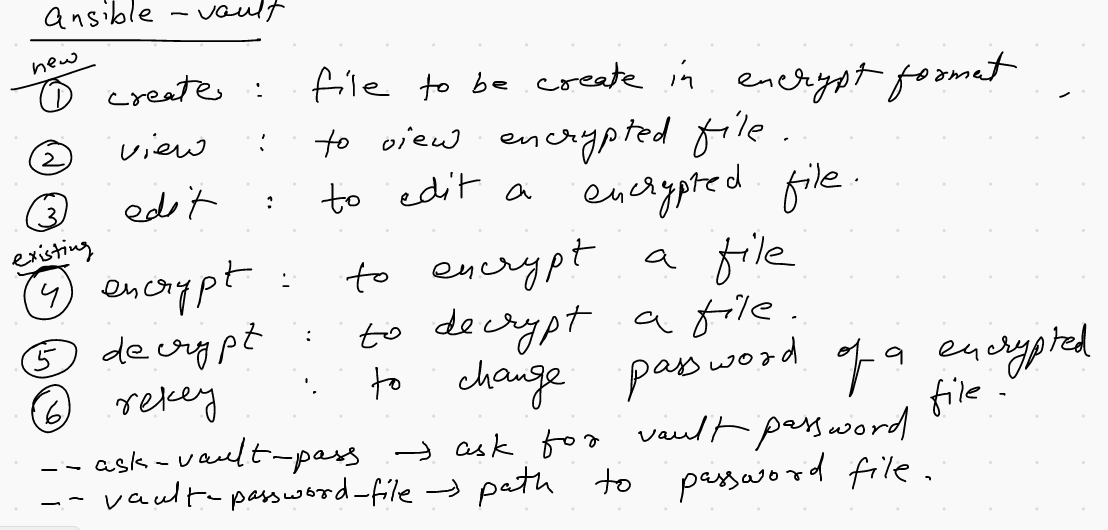 ansible-vault
new
① create : file to be create in encrypt format
② view : to view encrypted file.
③ edit : to edit a encrypted file.
existing
④ encrypt : to encrypt a file
⑤ decrypt : to decrypt a file.
⑥ rekey : to change password of a encrypted
file.
--ask-vault-pass → ask for vault password
--vault-password-file → path to password file.